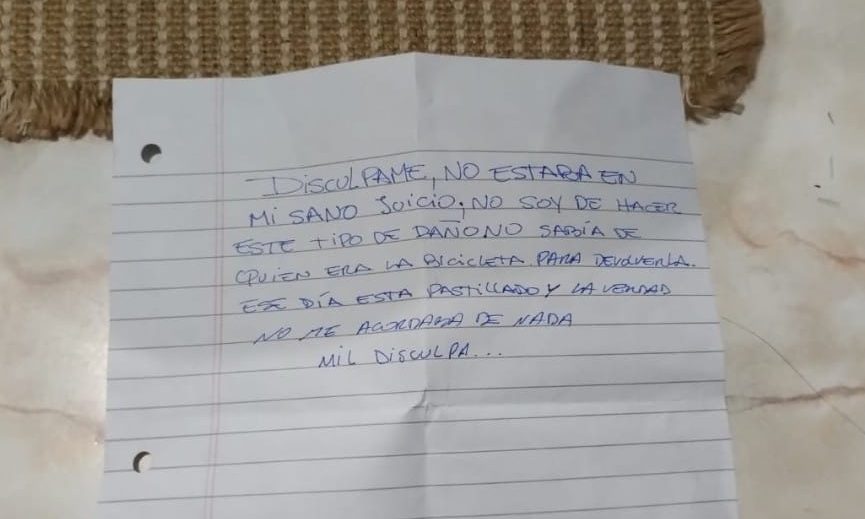 DISCULPAME, NO ESTABA EN
MI SANO JUICIO, NO SOY DE HACER
ESTE TIPO DE DAÑO NO SABÍA DE
QUIEN ERA LA BICICLETA PARA DEVOLVERLA.
ESE DÍA ESTA PASTILLADO Y LA VERDAD
NO ME ACORDABA DE NADA
MIL DISCULPA...